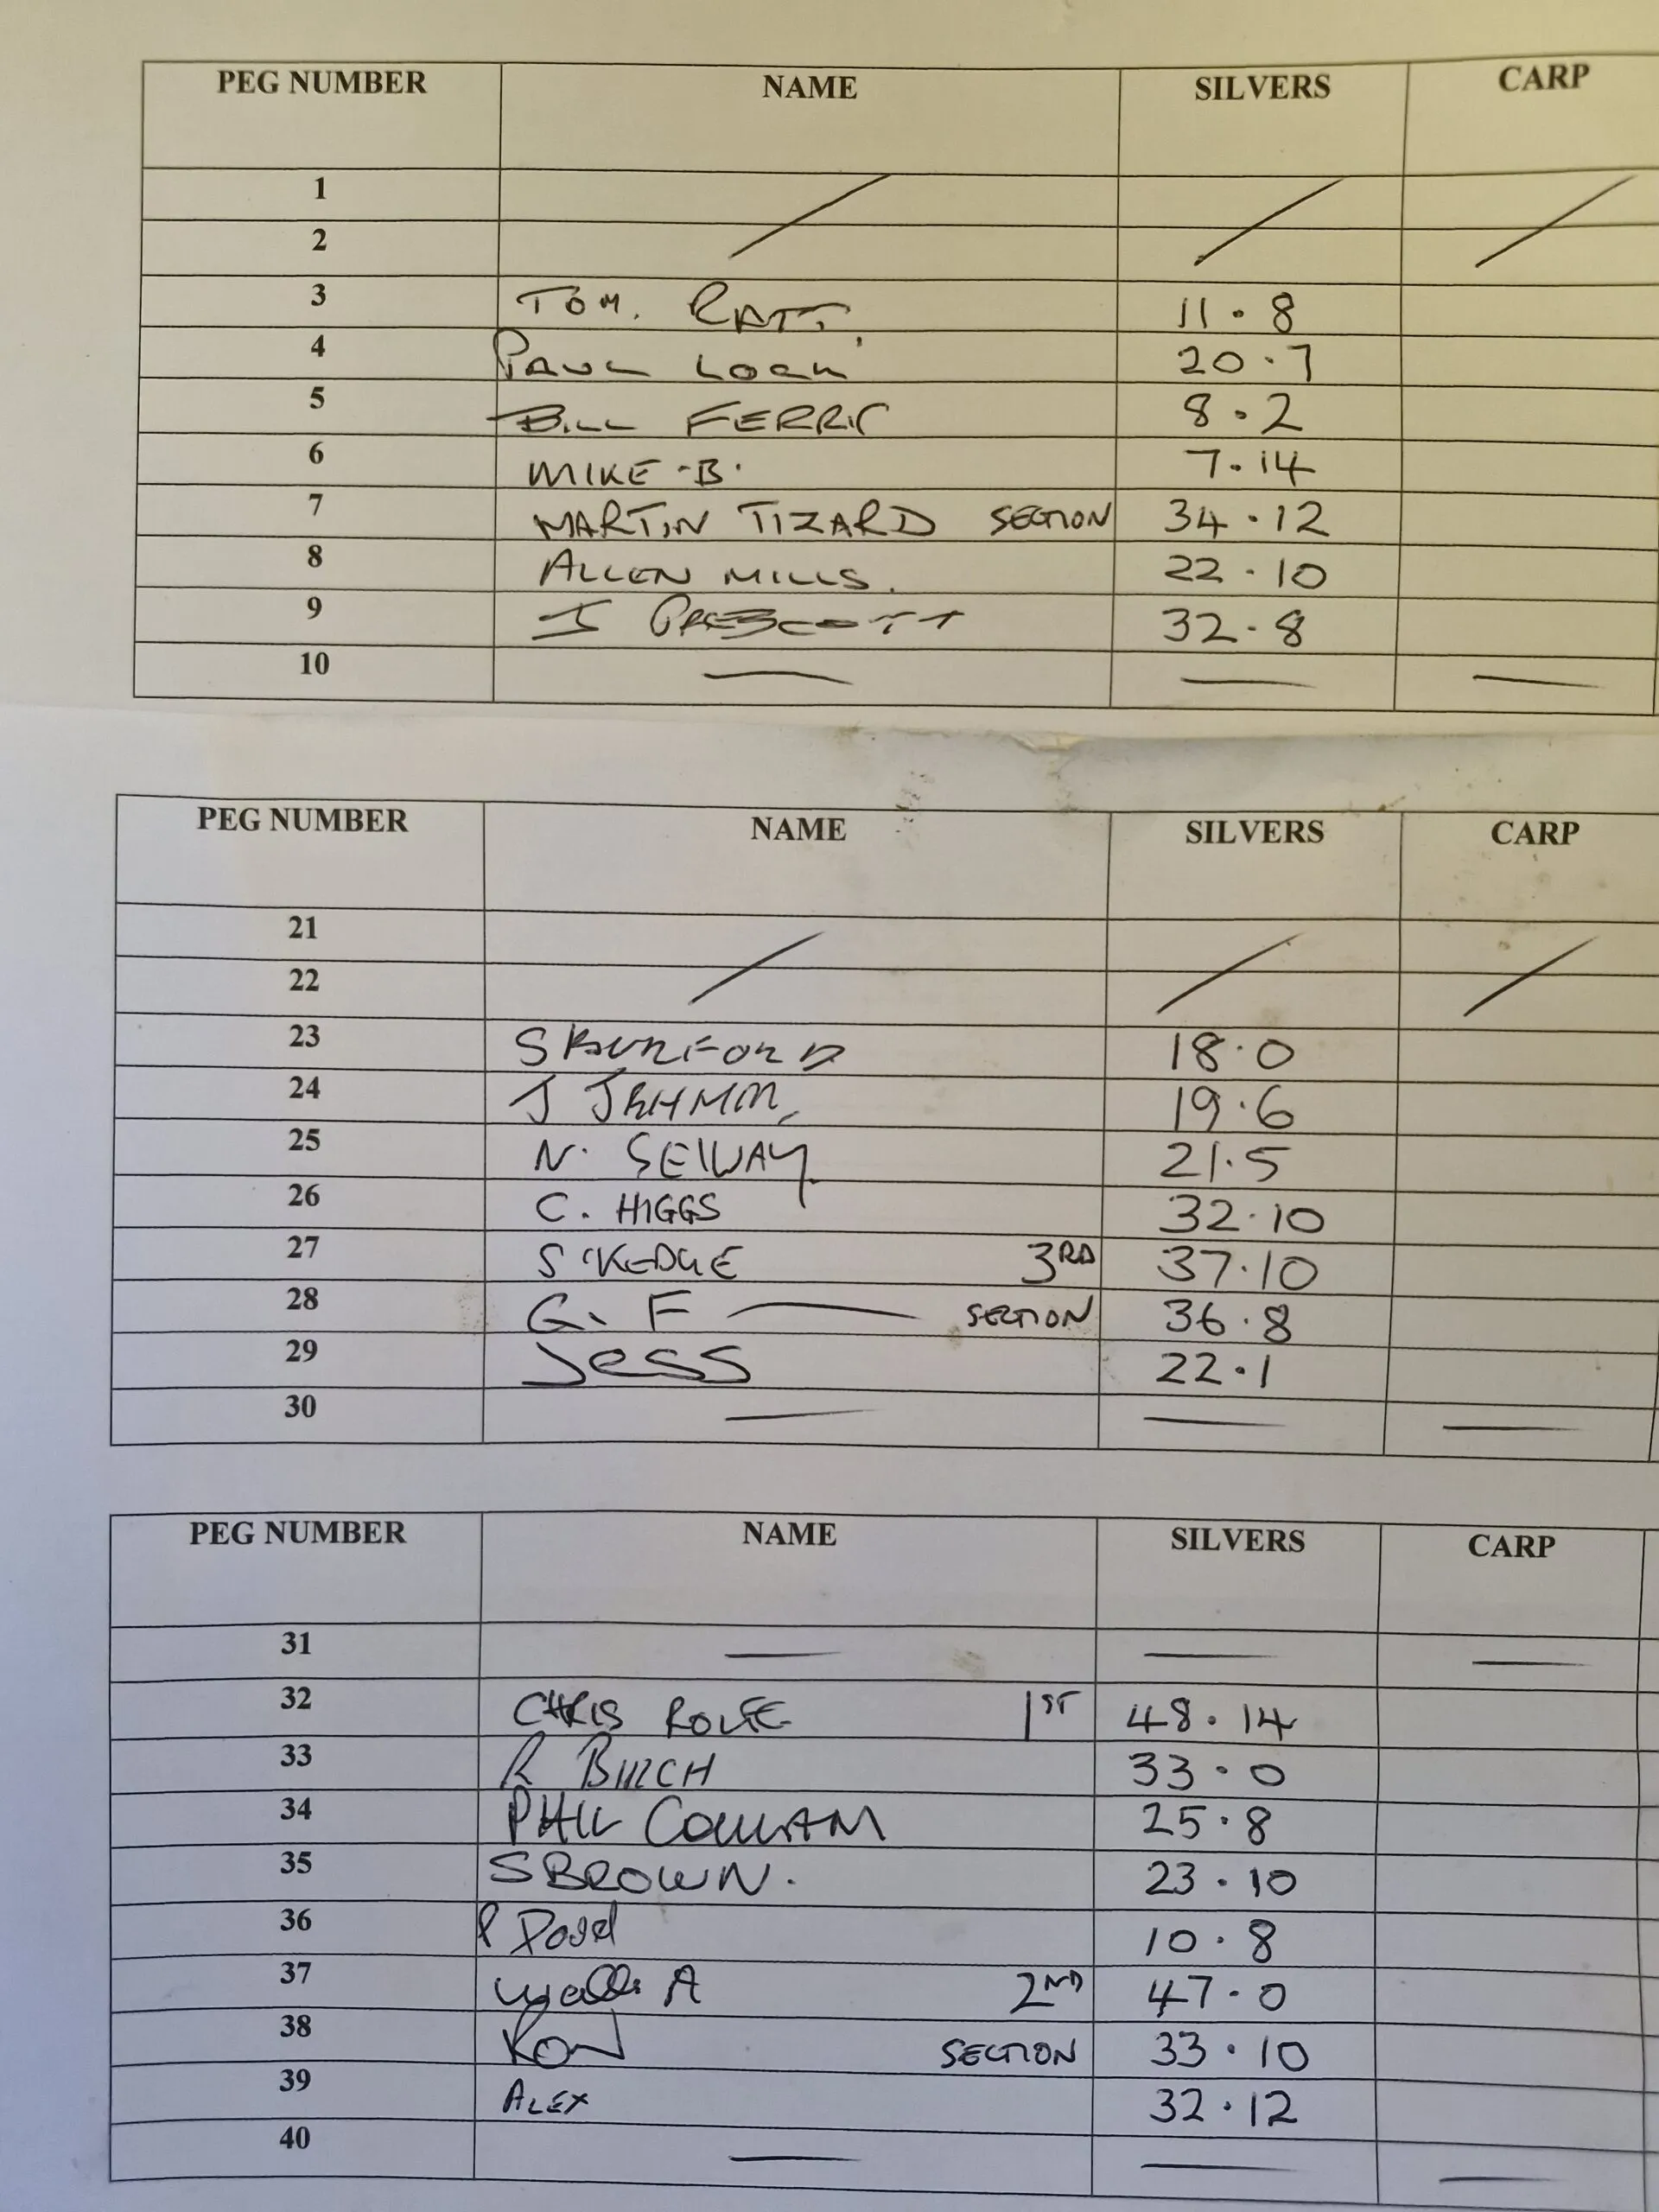 PEG NUMBER NAME SILVERS CARP
1
2
3 TOM. RATT 11.8
4 PAUL LOCK 20.7
5 BILL FERRIS 8.2
6 MIKE-B. 7.14
7 MARTIN TIZARD SECTION 34.12
8 ALLEN MILLS. 22.10
9 J PRESCOTT 32.8
10
PEG NUMBER NAME SILVERS CARP
21
22
23 S BURFORD 18.0
24 J 19.6
25 N. SELWAY 21.5
26 C. HIGGS 32.10
27 S KEDGE 3RD 37.10
28 G. F SECTION 36.8
29 Jess 22.1
30
PEG NUMBER NAME SILVERS CARP
31
32 CHRIS ROLFE 1ST 48.14
33 R BIRCH 33.0
34 PHIL 25.8
35 S BROWN. 23.10
36 P 10.8
37 A 2ND 47.0
38 RON SECTION 33.10
39 ALEX 32.12
40